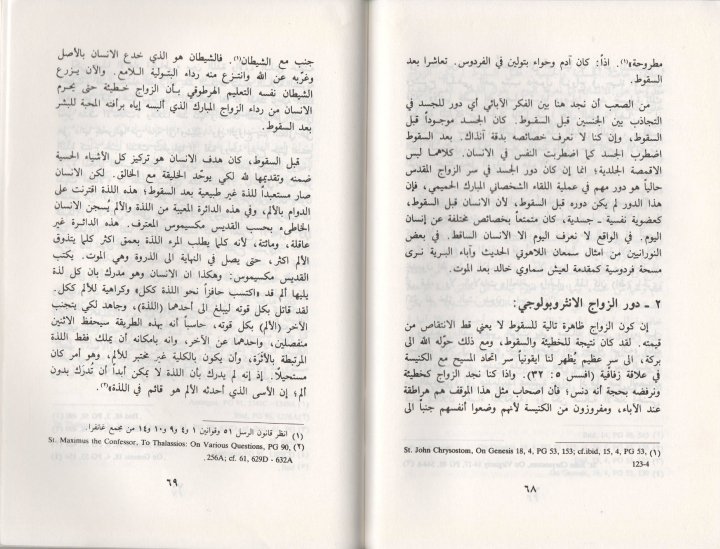 مطروحة»(١). اذاً: كان آدم وحواء بتولين في الفردوس. تعاشرا بعد
السقوط.
من الصعب أن نجد هنا بين الفكر الآبائي أي دور للجسد في
التجاذب بين الجنسين قبل السقوط. كان الجسد موجوداً قبل
السقوط، وإن كنا لا نعرف خصائصه بدقة آنذاك. بعد السقوط
اضطرب الجسد كما اضطربت النفس في الانسان. كلاهما لبس
الاقمصة الجلدية؛ انما إن كان دور الجسد في سر الزواج المقدس
حالياً هو دور مهم في عملية اللقاء الشخصاني المبارك الحميمي، فإن
هذا الدور لم يكن دوره قبل السقوط، لأن الانسان قبل السقوط،
كعضوية نفسية ـ جسدية، كان متمتعاً بخصائص مختلفة عن إنسان
اليوم. في الواقع لا نعرف اليوم الا الانسان الساقط. في بعض
النورانيين من امثال سمعان اللاهوتي الحديث وآباء البرية نرى
مسحة فردوسية كمقدمة لعيش سماوي خالد بعد الموت.
٢ ـ دور الزواج الانثروبولوجي:
إن كون الزواج ظاهرة تالية للسقوط لا يعني قط الانتقاص من
قيمته. لقد كان نتيجة للخطيئة والسقوط، ومع ذلك حوّله الله الى
بركة، الى سر عظيم يُظهر لنا ايقونياً سر اتحاد المسيح مع الكنيسة
في علاقة زفافية (افسس ٥ : ٣٢). واذا كنا نجد الزواج كخطيئة
ونرفضه بحجة أنه دنس؛ فأن اصحاب مثل هذا الموقف هم هراطقة
عند الآباء، ومفروزون من الكنيسة لأنهم وضعوا انفسهم جنباً الى
(١) St. John Chrysostom, On Genesis 18, 4, PG 53, 153; cf.ibid, 15, 4, PG 53,
123-4
٦٨
جنب مع الشيطان(١). فالشيطان هو الذي خدع الانسان بالأصل
وغرّبه عن الله وانتزع منه رداء البتولية اللامع. والآن يزرع
الشيطان نفسه التعليم الهرطوقي بأن الزواج خطيئة حتى يحرم
الانسان من رداء الزواج المبارك الذي ألبسه إياه برأفته المحبة للبشر
بعد السقوط.
قبل السقوط، كان هدف الانسان هو تركيز كل الأشياء الحسية
ضمنه وتقديمها لله لكي يوحّد الخليقة مع الخالق. لكن الانسان
صار مستعبداً للذة غير طبيعية بعد السقوط؛ هذه اللذة اقترنت على
الدوام بالألم، وفي هذه الدائرة المعيبة من اللذة والألم يُسجن الانسان
الخاطىء بحسب القديس مكسيموس المعترف. هذه الدائرة غير
عاقلة، ومائتة، لأنه كلما يطلب المرء اللذة بعمق اكثر كلما يتذوق
الألم اكثر، حتى يصل في النهاية الى الذروة وهي الموت. يكتب
القديس مكسيموس: وهكذا ان الانسان وهو مدرك بان كل لذة
يليها ألم قد «اكتسب حافزاً نحو اللذة ككل» وكراهية للألم ككل.
لقد قاتل بكل قوته ليبلغ الى أحدهما (اللذة)، وجاهد لكي يتجنب
الآخر (الألم) بكل قوته، حاسباً أنه بهذه الطريقة سيحفظ الاثنين
منفصلين، واحدهما عن الآخر، وانه بامكانه أن يملك فقط اللذة
المرتبطة بالأثَرَة، وأن يكون بالكلية غير مختبر للألم، وهو أمر كان
مستحيلاً. إذ إنه لم يدرك بأن اللذة لا يمكن أبداً أن تُدرَك بدون
ألم؛ إن الأسى الذي احدثه الألم هو قائم في اللذة»(٢).
(١) انظر قانون الرسل ٥١ وقوانين ١ و٤ و٩ و١٠ و١٤ من مجمع غانغرا.
(٢) St. Maximus the Confessor, To Thalassios: On Various Questions, PG 90,
256A; cf. 61, 629D - 632A.
٦٩